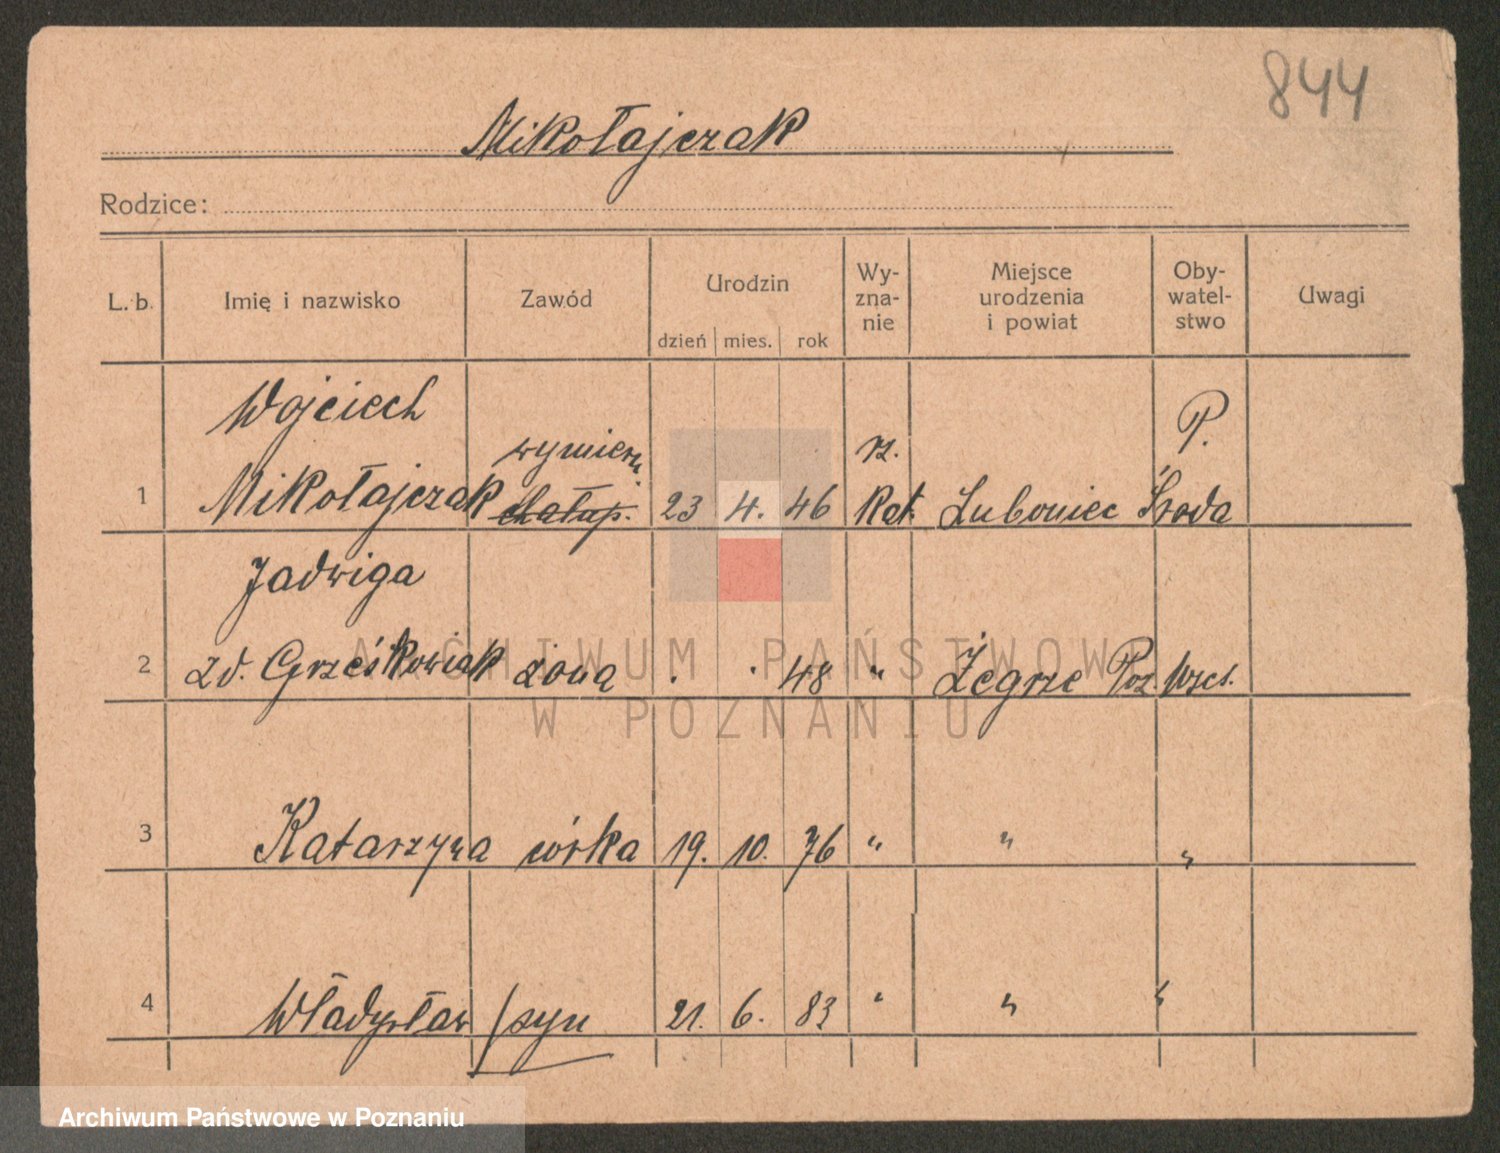 844
Mikołajczak
Rodzice:
L. b. Imię i nazwisko Zawód Urodzin dzień mies. rok Wy-zna-nie Miejsce urodzenia i powiat Oby-watel-stwo Uwagi
Wojciech
wymiern. rz. P.
1 Mikołajczak chałup. 23 4. 46 Kat. Luboniec Środa
Jadwiga
2 zd. Grześkowiak żona . . 48 " Żegrze Poz. Wsch.
3 Katarzyna córka 19. 10. 76 " " "
4 Władysław syn 21. 6. 83 " " "
ARCHIWUM PAŃSTWOW
W POZNANIU
Archiwum Państwowe w Poznaniu